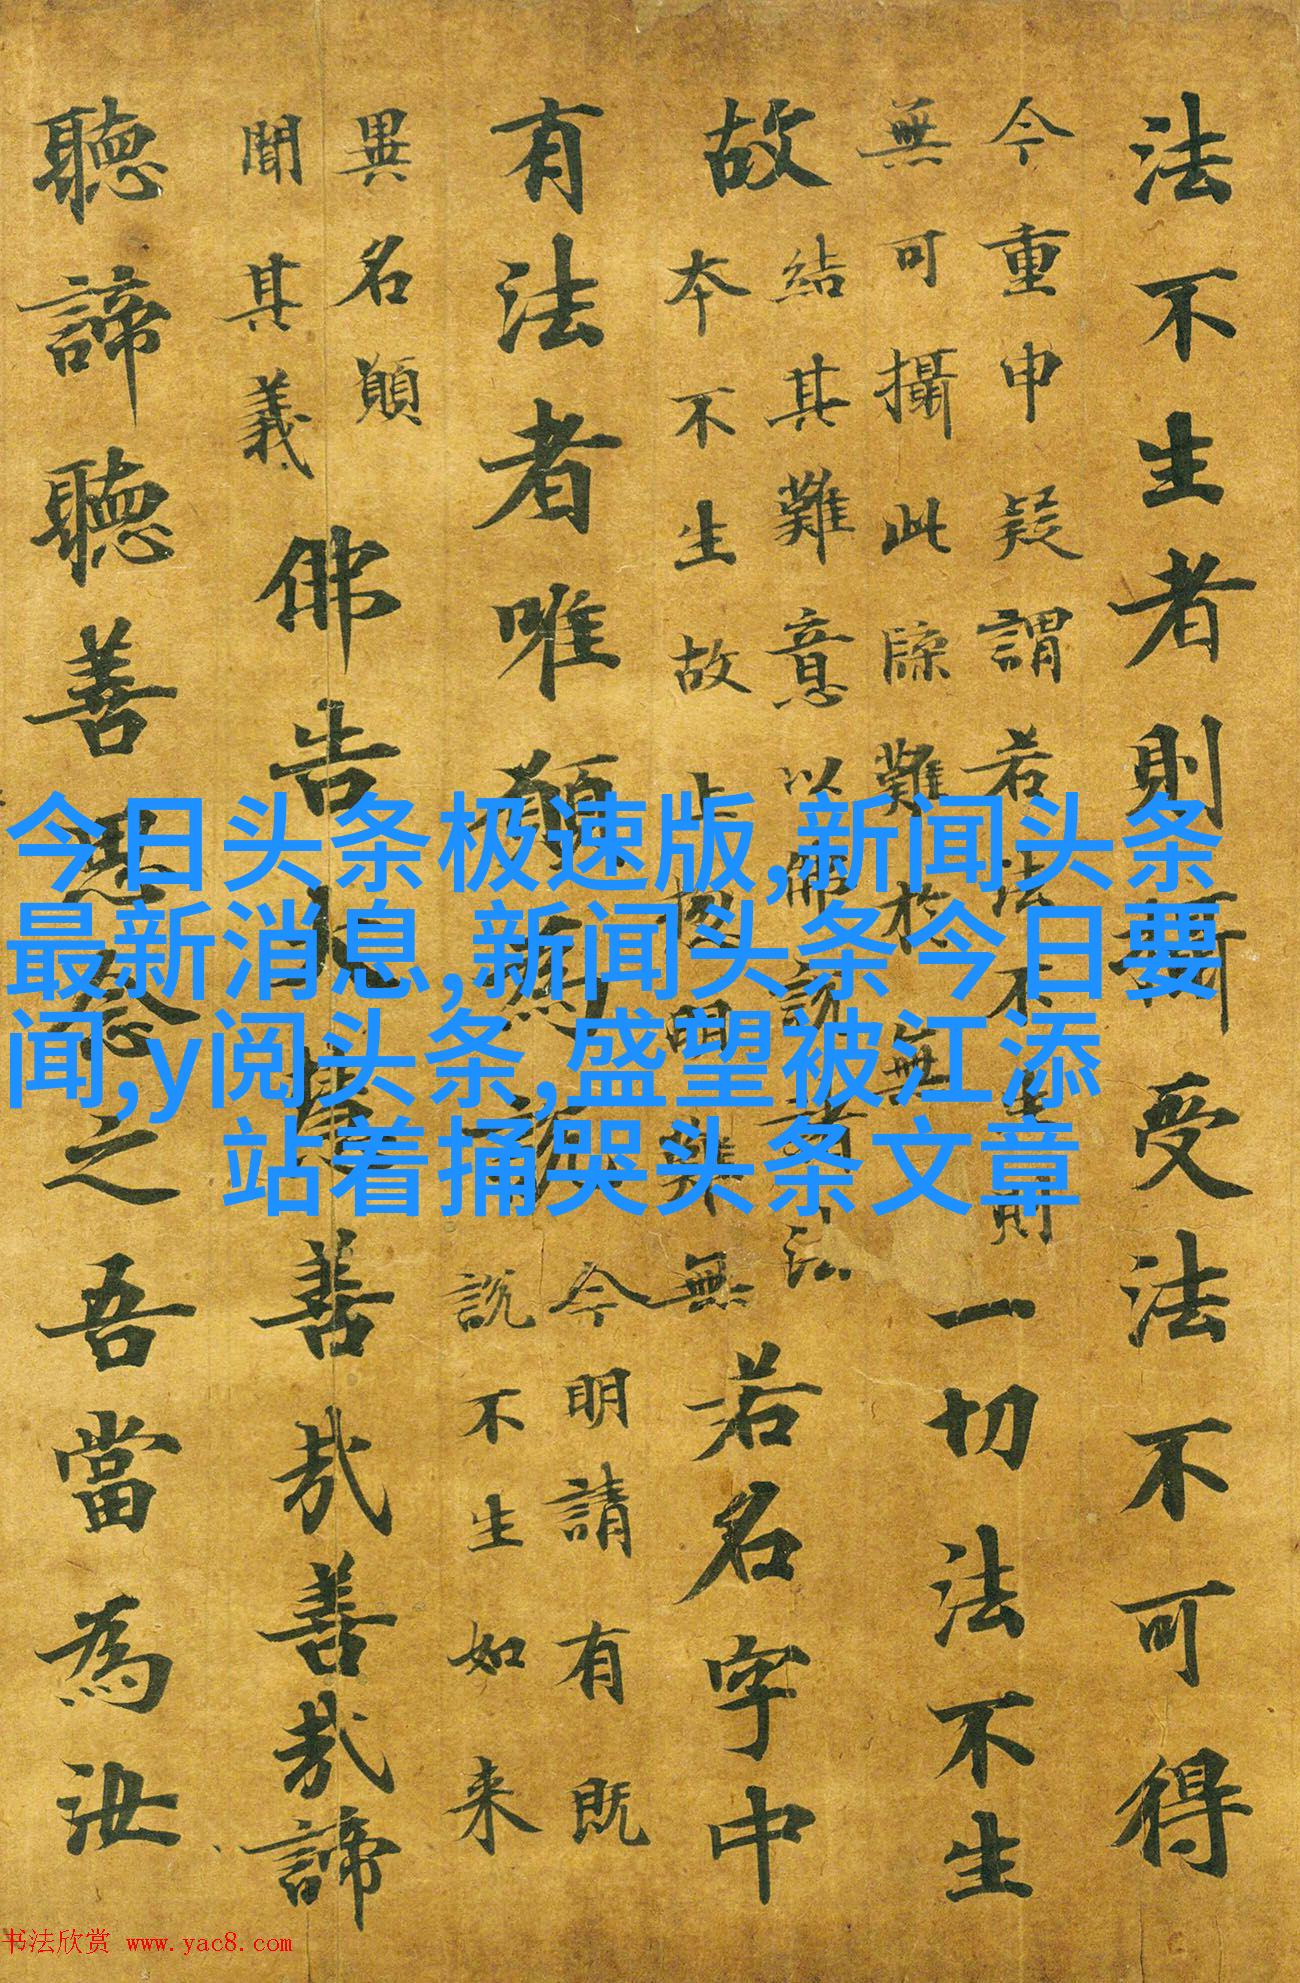 法不生者則受法不可得
今重申疑謂若法不生則
無可攝此牒難於無
一切法不生
故
結其難意以佛說者法
本不生故止明難無
若名字中
有法者唯願為說
今明請有既
說不生如来
異名願
聞其義
佛告大慧善哉善哉諦
聽諦聽善思念之吾當為汝
今日头条极速版,新闻头条
最新消息,新闻头条今日要
闻,y阅头条,盛望被江添
站着捅哭头条文章
书法欣赏 www.yac8.com